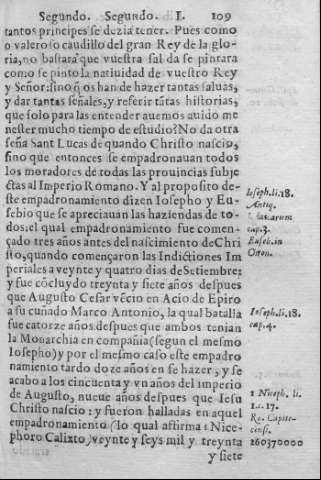 Segundo. Segundo. I. 109
tantos principes se dezia tener. Pues como
o valeroso caudillo del gran Rey de la glo-
ria, no bastara que vuestra sal da se pintara
como se pinto la natiuidad de vuestro Rey
y Señor: sino q̃ os han de hazer tantas saluas,
y dar tantas señales, y referir tãtas historias,
que solo para las entender auemos auido me
nester mucho tiempo de estudio? No da otra
seña Sant Lucas de quando Christo nascio,
sino que entonces se empadronauan todos
los moradores de todas las prouincias subje
ctas al Imperio Romano. Y al proposito de-
ste empadronamiento dizen Iosepho y Eu-
sebio que se apreciauan las haziendas de to-
dos: el qual empadronamiento fue comen-
çado tres años antes del nascimiento de Chri
sto, quando començaron las Indictiones Im
periales a veynte y quatro dias de Setiembre:
y fue cõcluydo treynta y siete años despues
que Augusto Cesar vẽcio en Acio de Epiro
a su cuñado Marco Antonio, la qual batalla
fue catorze años despues que ambos tenian
la Monarchia en compañia (segun el mesmo
Iosepho) y por el mesmo caso este empadro
namiento tardo doze años en se hazer, y se
acabo a los cincuenta y vn años del imperio
de Augusto, nueue años despues que Iesu
Christo nascio: y fueron halladas en aquel
empadronamiento (lo qual affirma Nice-
phoro Calixto) veynte y seys mil y treynta
y siete
Ioseph. li. 18.
Antiq.
cap. 3.
Euseb. in
Ioseph. li. 18.
cap. 4.
1 Niceph. li.
1. c. 17.
260370000